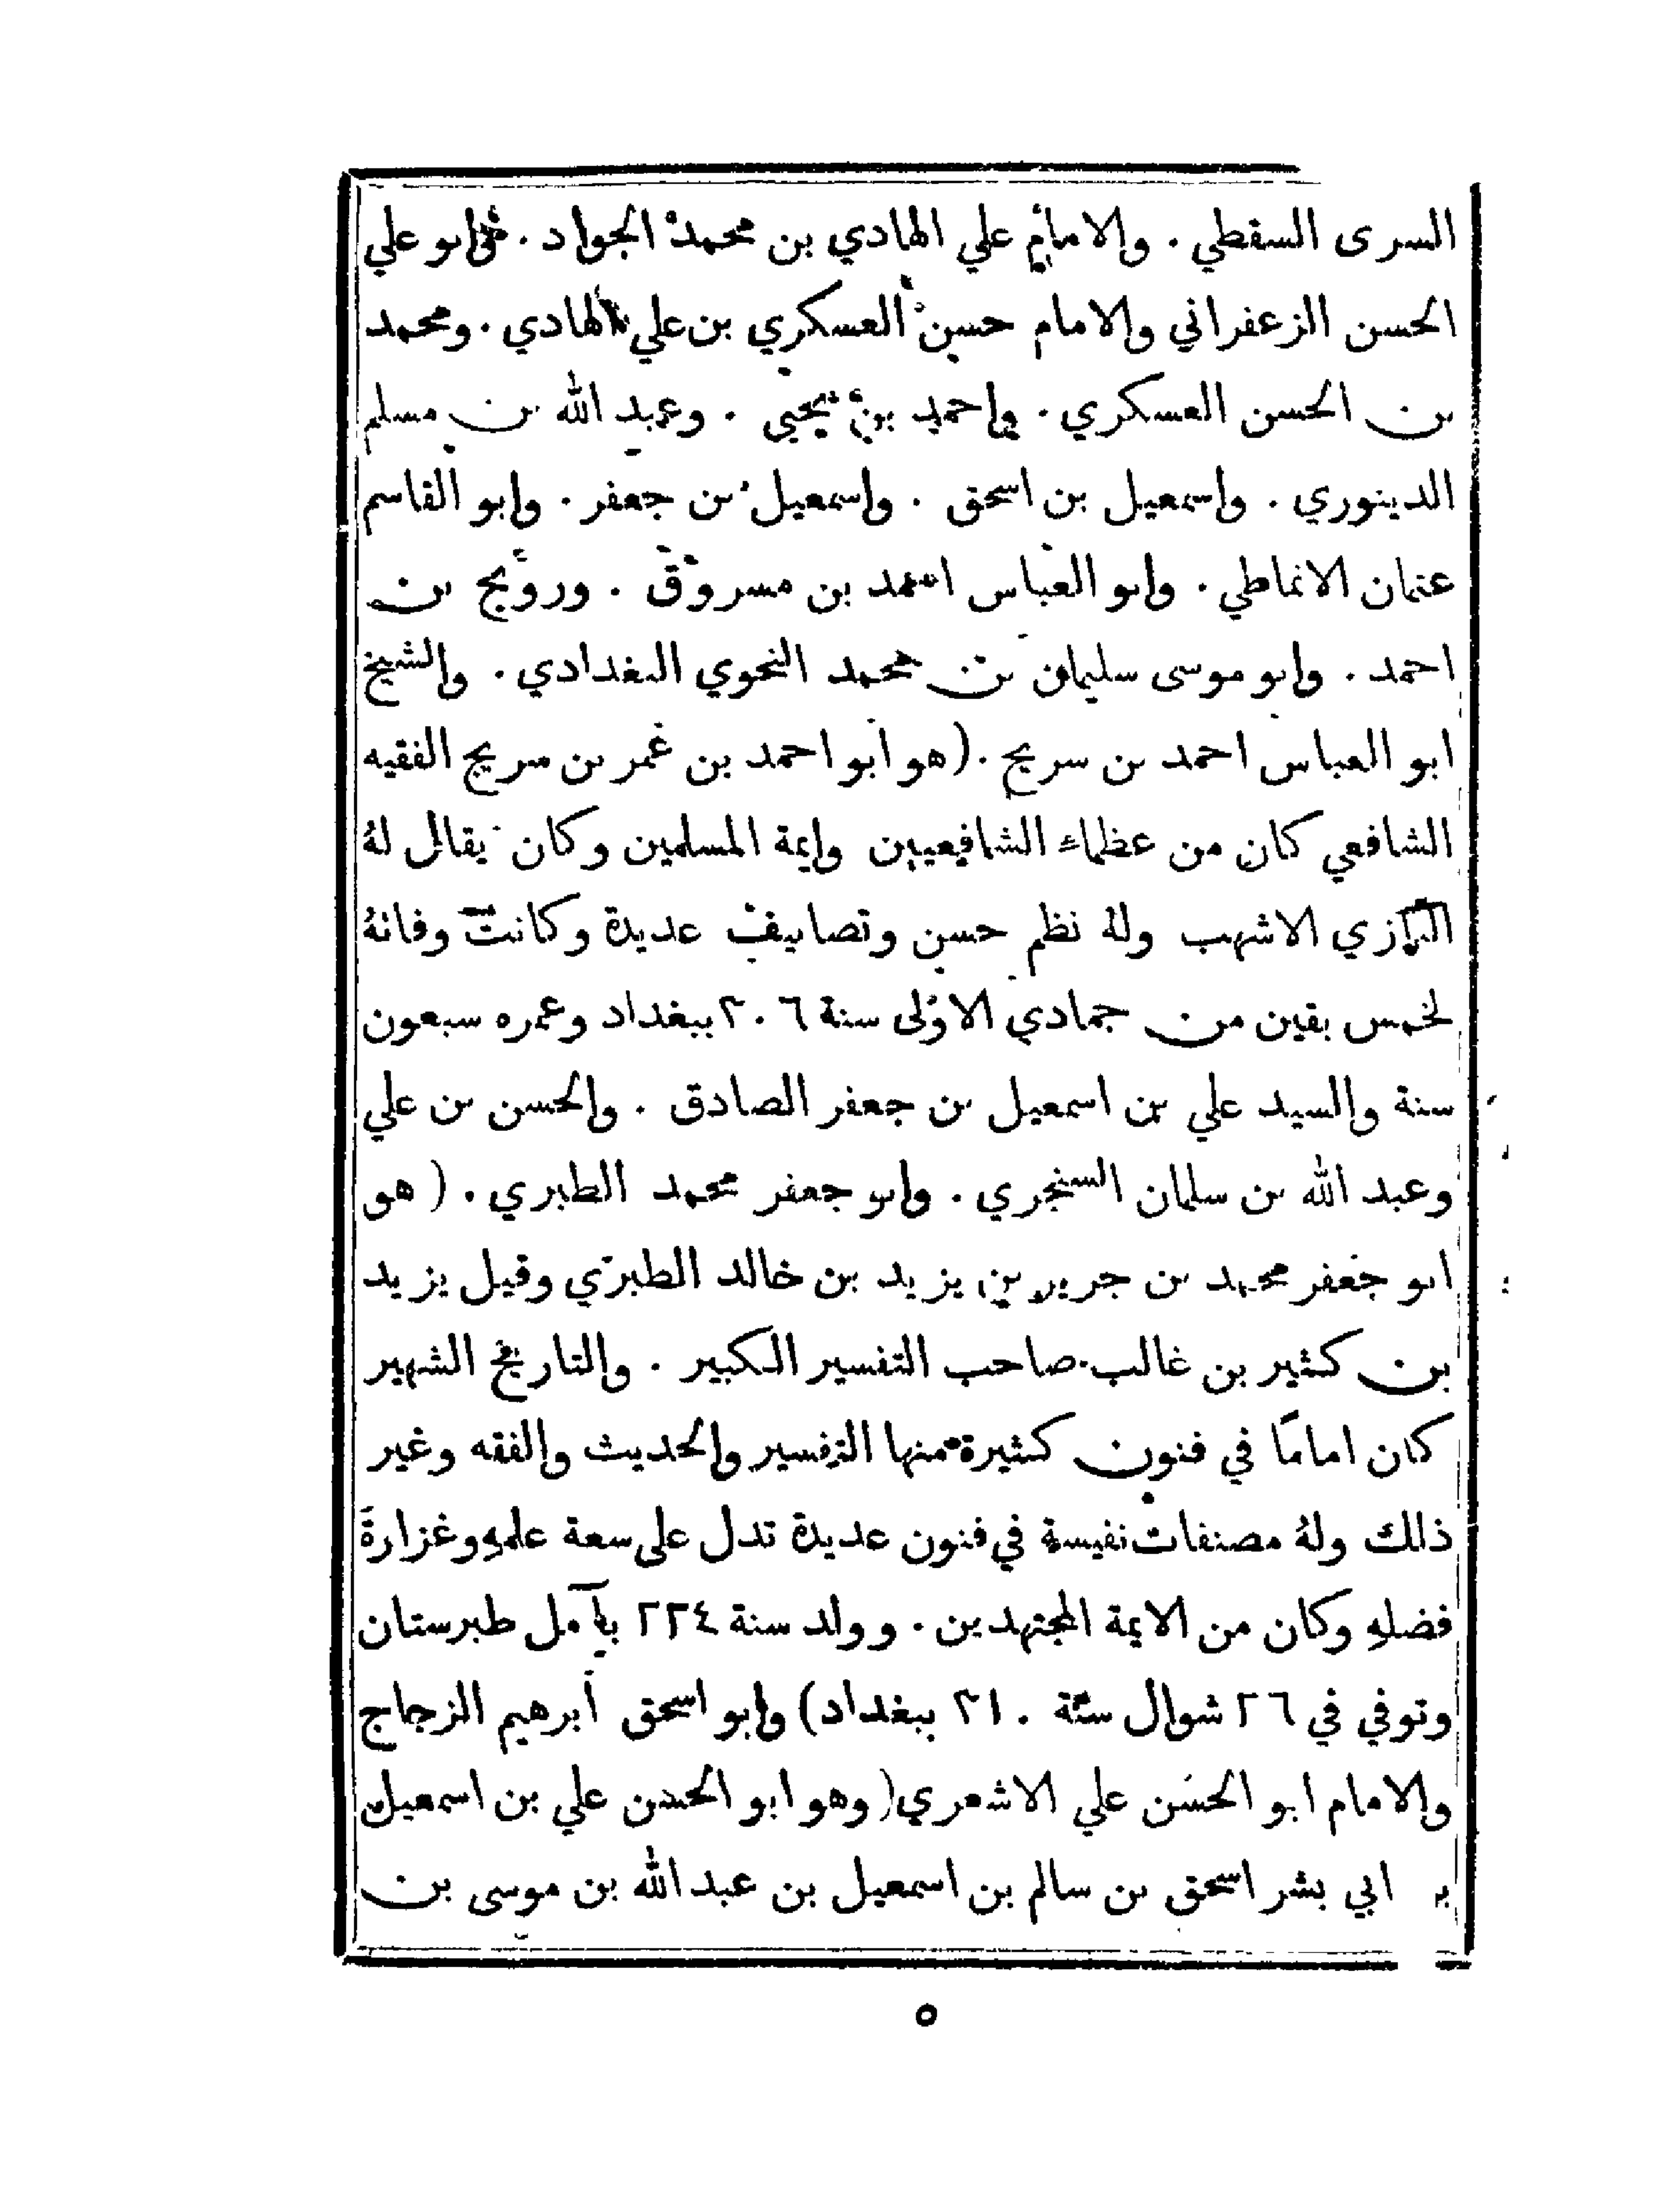 السرى السقطي . والامام علي الهادي بن محمد الجواد . وابو علي
الحسن الزعفراني والامام حسن العسكري بن علي الهادي . ومحمد
بن الحسن العسكري . واحمد بن يحيى . وعبد الله بن مسلم
الدينوري . واسمعيل بن اسحق . واسمعيل بن جعفر . وابو القاسم
عثمان الانماطي . وابو العباس احمد بن مسروق . ورويج بن
احمد . وابو موسى سليمان بن محمد النحوي البغدادي . والشيخ
ابو العباس احمد بن سريج . (هو ابو احمد بن عمر بن سريج الفقيه
الشافعي كان من عظماء الشافعيين وايمة المسلمين وكان يقال لهُ
البازي الاشهب ولهُ نظم حسن وتصانيف عديدة وكانت وفاتهُ
لخمس بقين من جمادي الاولى سنة ٣٠٦ ببغداد وعمره سبعون
سنة والسيد علي بن اسمعيل بن جعفر الصادق . والحسن بن علي
وعبد الله بن سلمان السنجري . وابو جعفر محمد الطبري . ( هو
ابو جعفر محمد بن جرير بن يزيد بن خالد الطبري وقيل يزيد
بن كثير بن غالب صاحب التفسير الكبير . والتاريخ الشهير
كان امامًا في فنون كثيرة منها التفسير والحديث والفقه وغير
ذلك ولهُ مصنفات نفيسة في فنون عديدة تدل على سعة علمهِ وغزارة
فضلهِ وكان من الايمة المجتهدين . وولد سنة ٢٢٤ بآمل طبرستان
وتوفي في ٢٦ شوال سنة ٣١٠ ببغداد) وابو اسحق ابرهيم الزجاج
والامام ابو الحسن علي الاشعري ( وهو ابو الحسن علي بن اسمعيل
ابي بشر اسحق بن سالم بن اسمعيل بن عبد الله بن موسى بن
٥